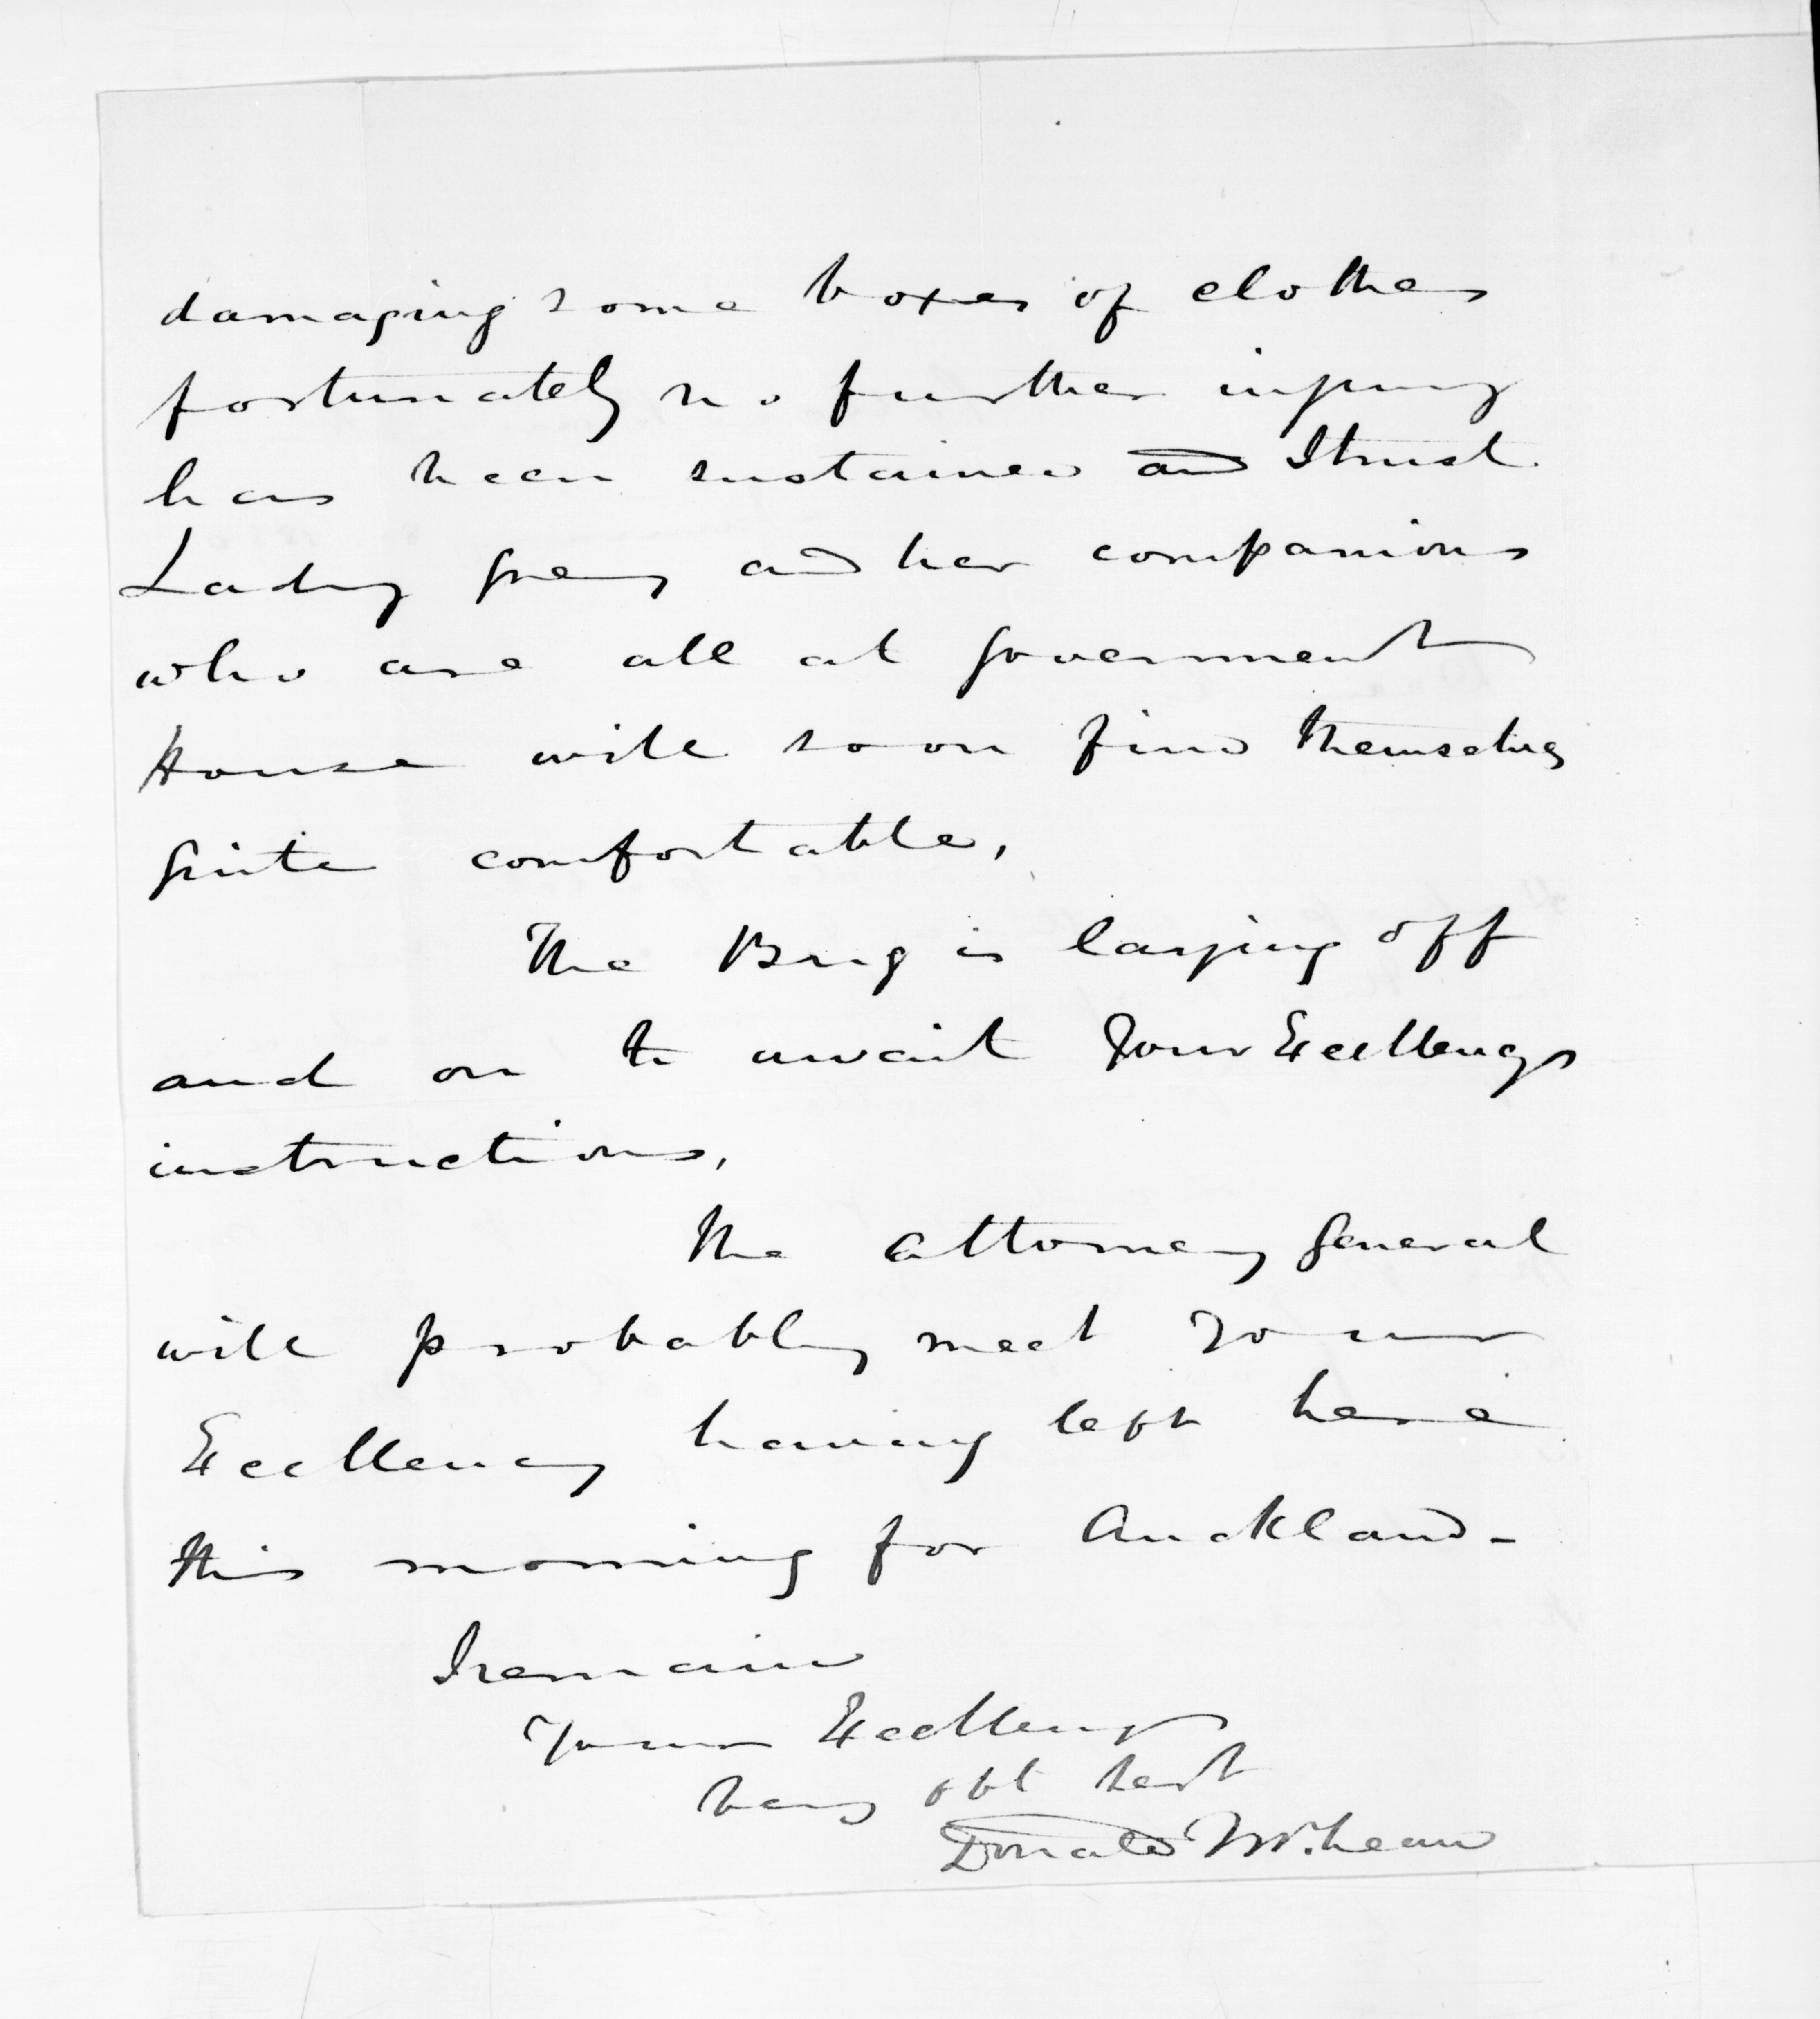 damaging some boxes of clothes
fortunately no further injury
has been sustained and I trust
Lady Grey and her companions
who are all at Government
House will soon find themselves
quite comfortable,
The Brig is laying off
and on to await Your Excellencys
instructions,
The Attorney General
will probably meet Your
Excellency having left here
this morning for Auckland-
I remain
Your Excellencys
Very obt Servt
Donald McLean